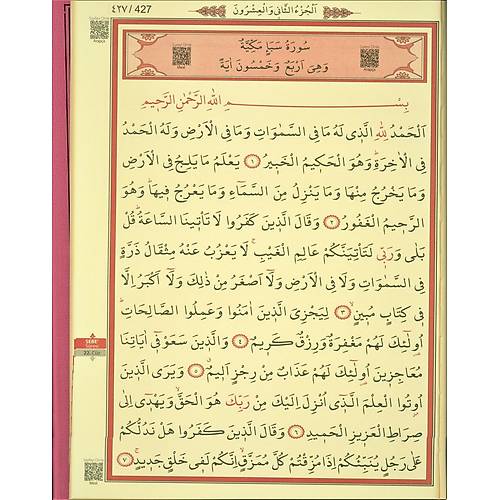 ٤٢٧ / 427
اَلْجُزْءُ الثَّانٖي وَالْعِشْرُونَ
سُورَةُ سَبَأٍ مَكِّيَّةٌ
وَهِيَ اَرْبَعٌ وَخَمْسُونَ اٰيَةً
بِسْمِ اللّٰهِ الرَّحْمٰنِ الرَّحٖيمِ
اَلْحَمْدُ لِلّٰهِ الَّذٖي لَهُ مَا فِي السَّمٰوَاتِ وَمَا فِي الْاَرْضِ وَلَهُ الْحَمْدُ
فِي الْاٰخِرَةِ وَهُوَ الْحَكٖيمُ الْخَبٖيرُ ﴿١﴾ يَعْلَمُ مَا يَلِجُ فِي الْاَرْضِ
وَمَا يَخْرُجُ مِنْهَا وَمَا يَنْزِلُ مِنَ السَّمَٓاءِ وَمَا يَعْرُجُ فٖيهَا وَهُوَ
الرَّحٖيمُ الْغَفُورُ ﴿٢﴾ وَقَالَ الَّذٖينَ كَفَرُوا لَا تَأْتٖينَا السَّاعَةُ قُلْ
بَلٰى وَرَبّٖي لَتَأْتِيَنَّكُمْ عَالِمِ الْغَيْبِ لَا يَعْزُبُ عَنْهُ مِثْقَالُ ذَرَّةٍ
فِي السَّمٰوَاتِ وَلَا فِي الْاَرْضِ وَلَٓا اَصْغَرُ مِنْ ذٰلِكَ وَلَٓا اَكْبَرُ اِلَّا
فٖي كِتَابٍ مُبٖينٍ ﴿٣﴾ لِيَجْزِيَ الَّذٖينَ اٰمَنُوا وَعَمِلُوا الصَّالِحَاتِ
اُو۬لٰٓئِكَ لَهُمْ مَغْفِرَةٌ وَرِزْقٌ كَرٖيمٌ ﴿٤﴾ وَالَّذٖينَ سَعَوْ فٖٓي اٰيَاتِنَا
مُعَاجِزٖينَ اُو۬لٰٓئِكَ لَهُمْ عَذَابٌ مِنْ رِجْزٍ اَلٖيمٌ ﴿٥﴾ وَيَرَى الَّذٖينَ
اُو۫تُوا الْعِلْمَ الَّذٖٓي اُنْزِلَ اِلَيْكَ مِنْ رَبِّكَ هُوَ الْحَقَّ وَيَهْدٖٓي اِلٰى
صِرَاطِ الْعَزٖيزِ الْحَمٖيدِ ﴿٦﴾ وَقَالَ الَّذٖينَ كَفَرُوا هَلْ نَدُلُّكُمْ
عَلٰى رَجُلٍ يُنَبِّئُكُمْ اِذَا مُزِّقْتُمْ كُلَّ مُمَزَّقٍ اِنَّكُمْ لَفٖي خَلْقٍ جَدٖيدٍ ﴿٧﴾
SEBE'
Sûresi
22. Cüz